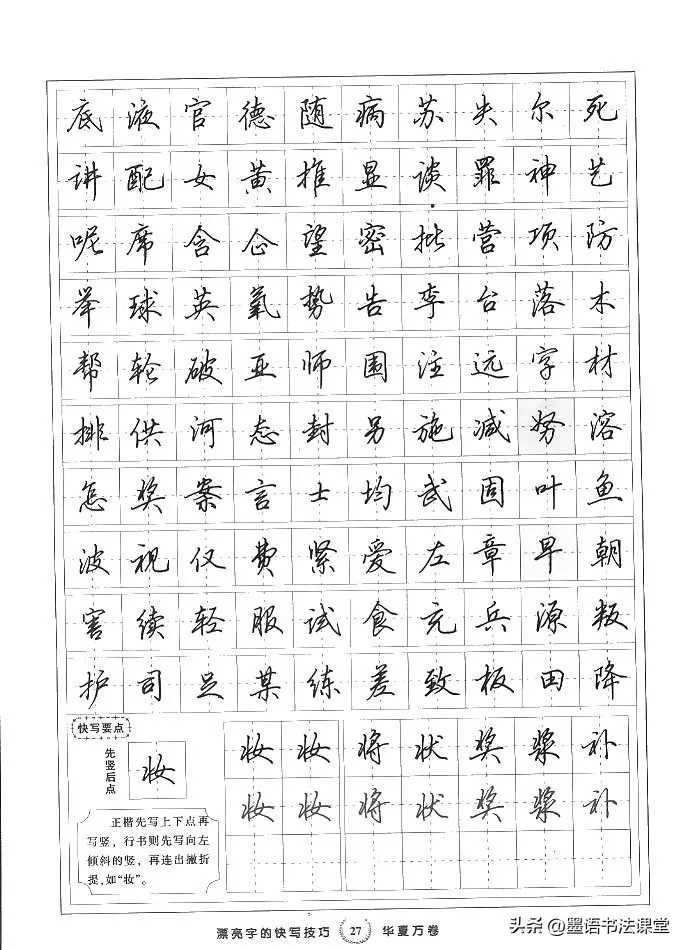 底 液 官 德 随 病 苏 失 尔 死
讲 配 女 黄 推 显 谈 罪 神 艺
呢 席 含 企 望 密 批 营 项 防
举 球 英 氧 势 告 李 台 落 木
帮 轮 破 亚 师 围 注 远 字 材
排 供 河 态 封 另 施 减 努 溶
怎 奖 案 言 士 均 武 固 叶 鱼
波 视 仅 费 紧 爱 左 章 早 朝
害 续 轻 服 试 食 充 兵 源
护 司 足 某 练 差 致 板 田 降
快写要点
先竖后点
妆
正楷先写上下点再
写竖，行书则先写向左
倾斜的竖，再连出撇折
提，如“妆”。
妆 妆 将 状 奖 浆 补
妆 妆 将 状 奖 浆 补
漂亮字的快写技巧 27 华夏万卷
头条 @墨语书法课堂